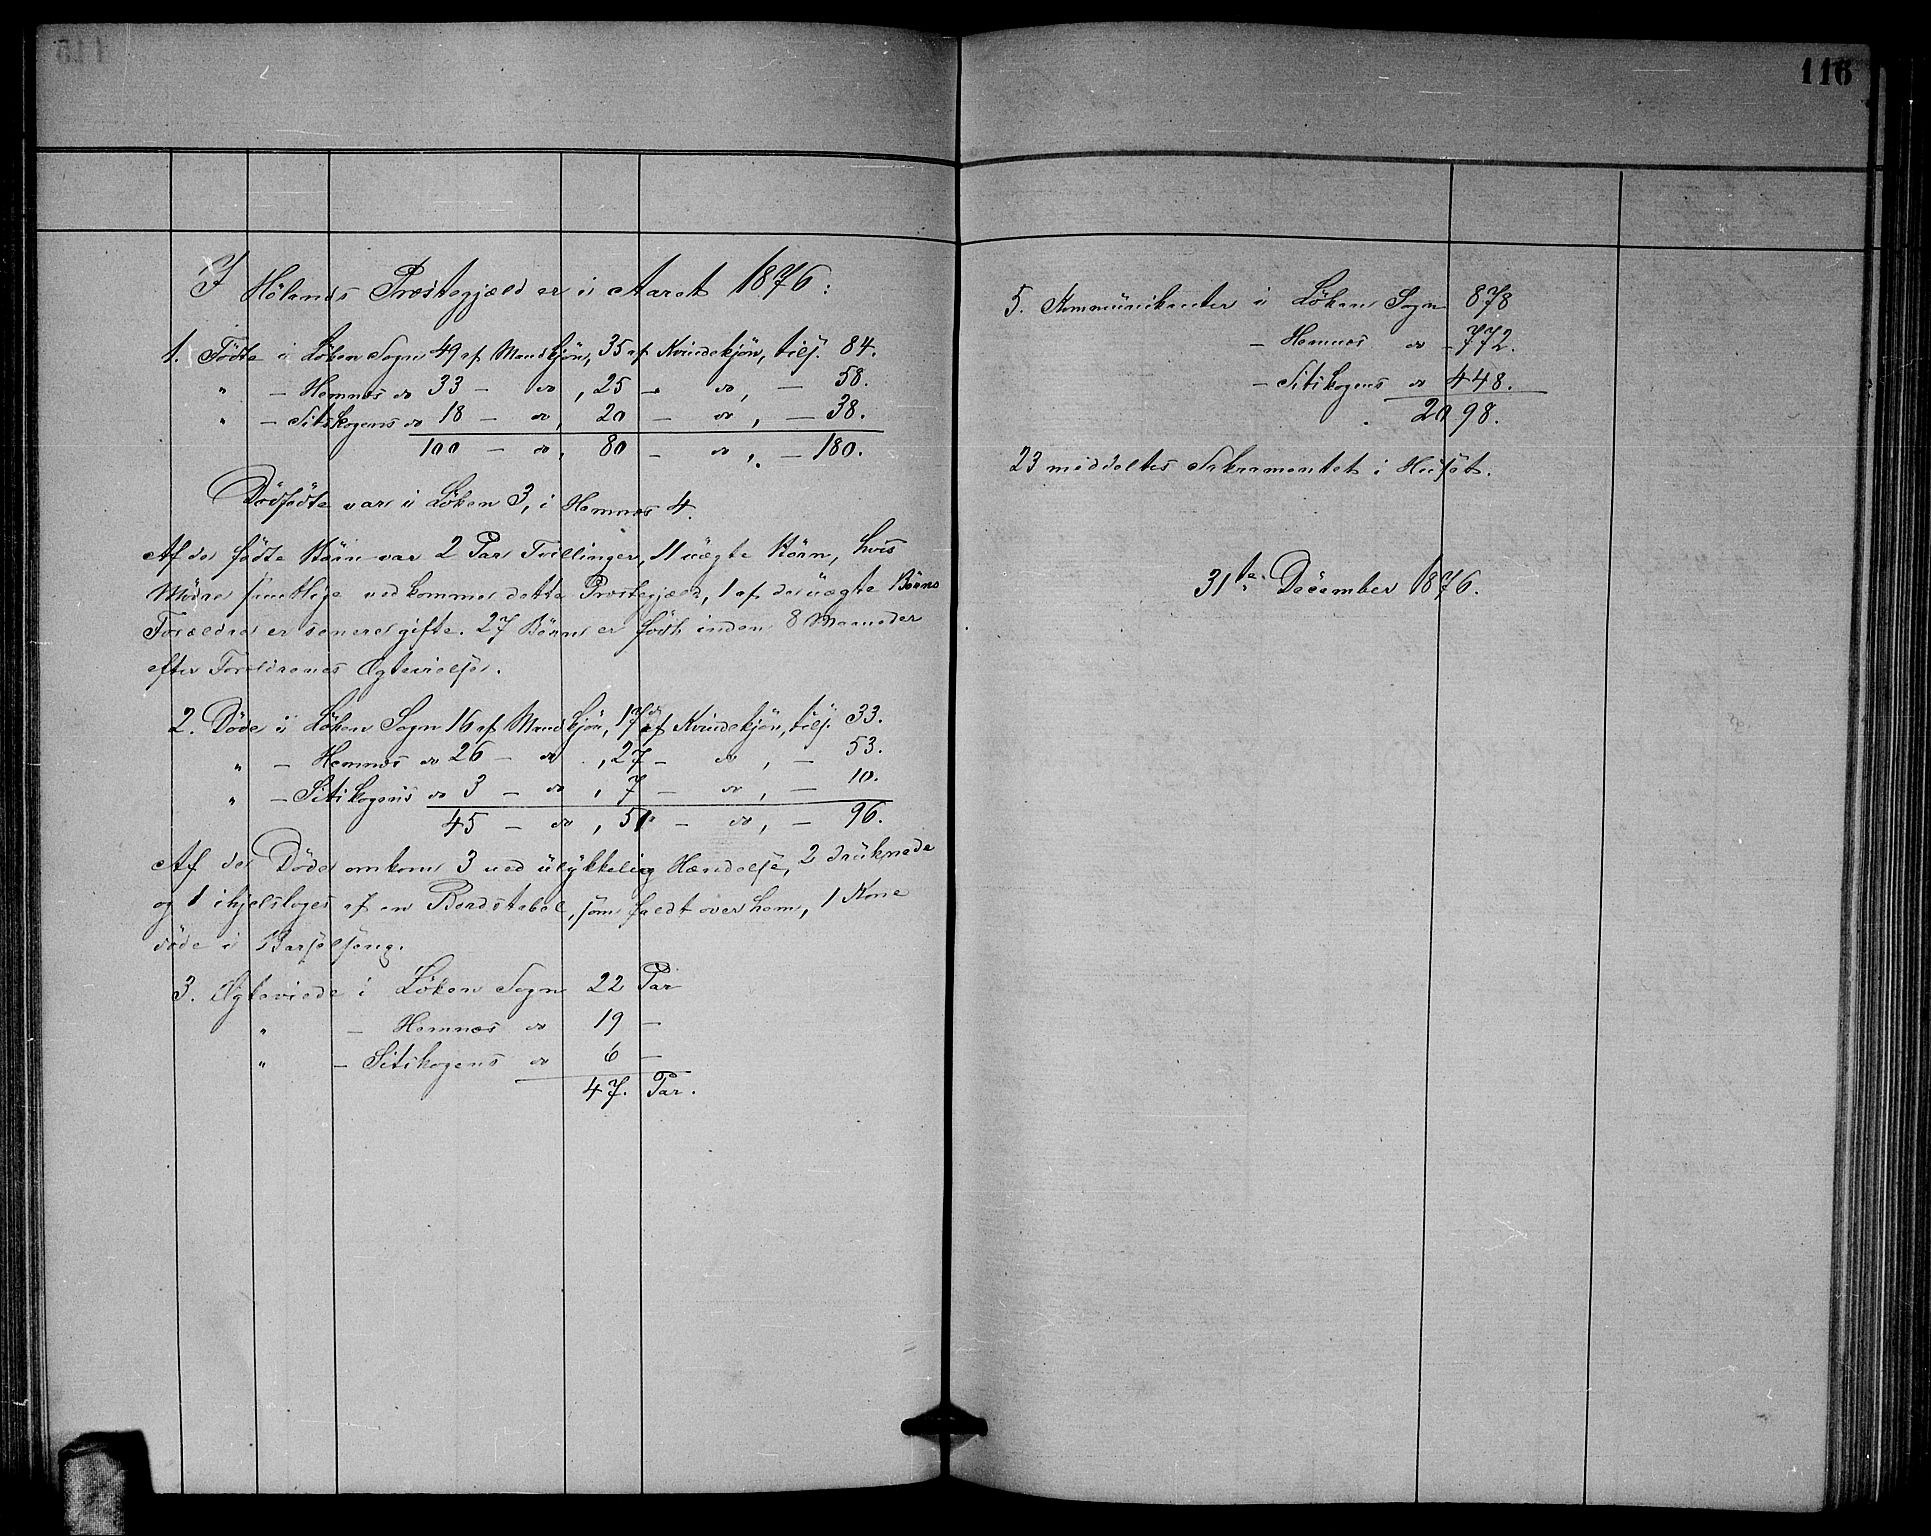 116
I Hølands Præstegjæld er i Aaret 1876:
1. Fødte i Løken Sogn 49 af Mandkjøn, 35 af Kvindekjøn, tils. 84.
" — Hemnæs do 33 — do , 25 — do , — 58.
" — Sitskogens do 18 — do , 20 — do , — 38.
100 — do , 80 — do , — 180.
Dødfødte var i Løken 3, i Hemnæs 4.
Af de fødte Børn var 2 Par Tvillinger, 11 uægte Børn, hvis
Mødre samtlige vedkommer dette Præstegjæld, 1 af de uægte Børns
Forældre er senere gifte. 27 Børn er født inden 8 Maaneder
efter Forældrenes Ægtevielse.
2. Døde i Løken Sogn 16 af Mandkjøn, 17 af Kvindekjøn, tils. 33.
" — Hemnæs do 26 — do , 27 — do , — 53.
" — Sitskogens do 3 — do , 7 — do , — 10.
45 — do , 51 — do , — 96.
Af de Døde omkom 3 ved ulykkelig Hændelse, 2 druknede
og 1 ihjelsloges af en Bordstabel, som faldt over ham, 1 Kone
døde i Barselseng.
3. Ægteviede i Løken Sogn 22 Par
" — Hemnæs do 19 —
" — Sitskogens do 6 —
47. Par.
5. Kommunikanter i Løken Sogn 878
— Hemnæs do — 772.
— Sitskogens do 448.
2098.
23 meddeltes Sakramentet i Huset.
31te December 1876.